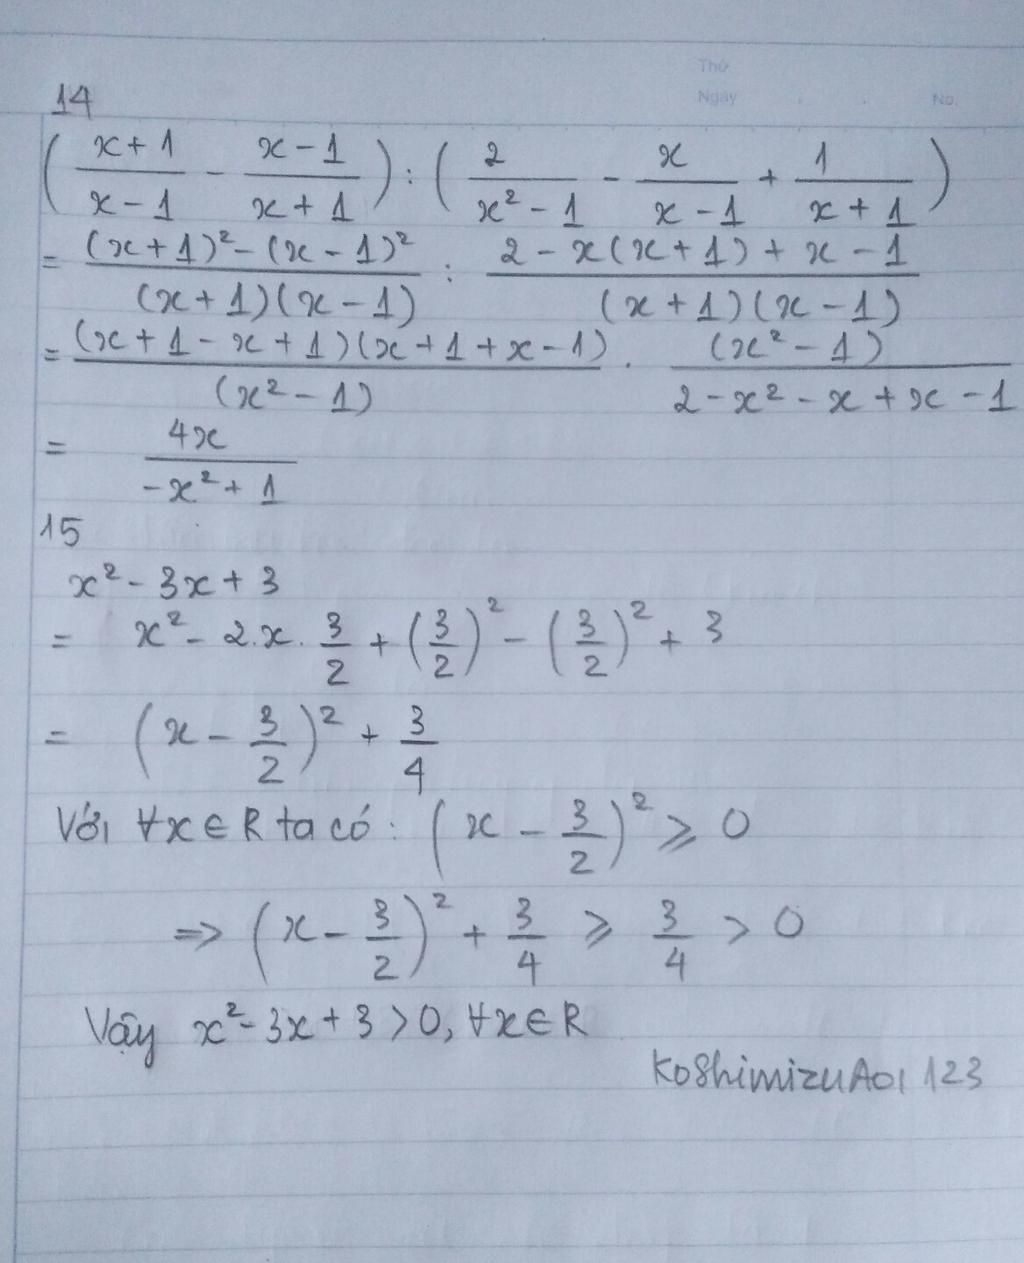 Thứ
Ngày . . No.
14
(x+1/x-1 - x-1/x+1) : (2/x²-1 - x/x-1 + 1/x+1)
= (x+1)²-(x-1)²/(x+1)(x-1) : 2-x(x+1)+x-1/(x+1)(x-1)
= (x+1-x+1)(x+1+x-1)/(x²-1) . (x²-1)/2-x²-x+x-1
= 4x/-x²+1
15
x²-3x+3
= x²-2.x.3/2+(3/2)²-(3/2)²+3
= (x-3/2)²+3/4
Với ∀x∈R ta có: (x-3/2)² ⩾ 0
=> (x-3/2)²+3/4 ⩾ 3/4 > 0
Vậy x²-3x+3>0, ∀x∈R
KoshimizuAoi 123